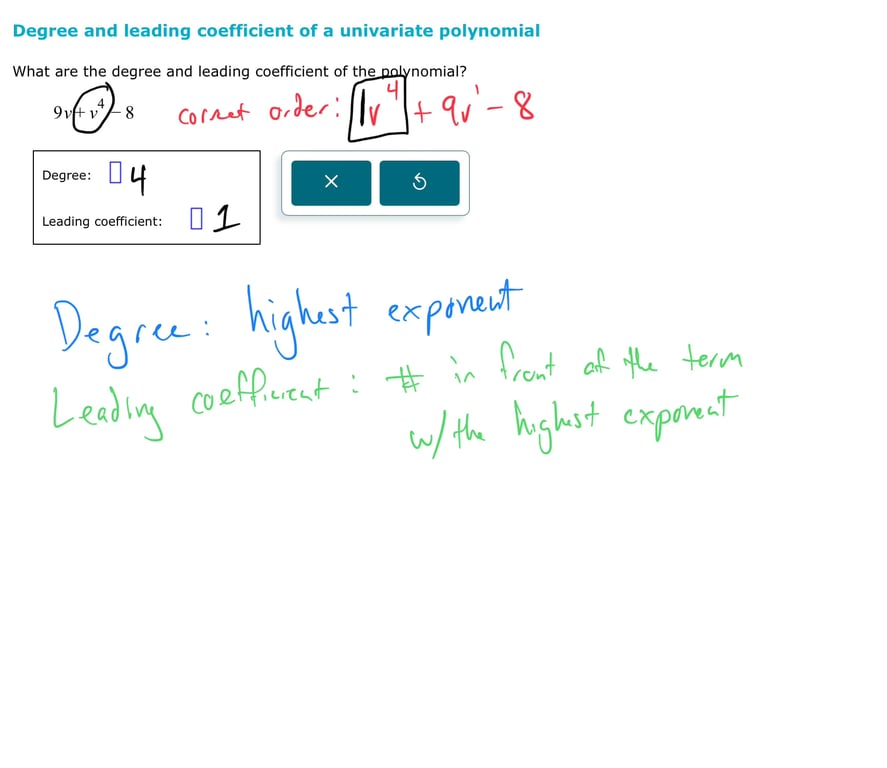 Degree and leading coefficient of a univariate polynomial
What are the degree and leading coefficient of the polynomial?
9v + v⁴ − 8 correct order: 1v⁴ + 9v¹ − 8
Degree: 4
Leading coefficient: 1
Degree: highest exponent
Leading coefficient: # in front of the term
w/ the highest exponent